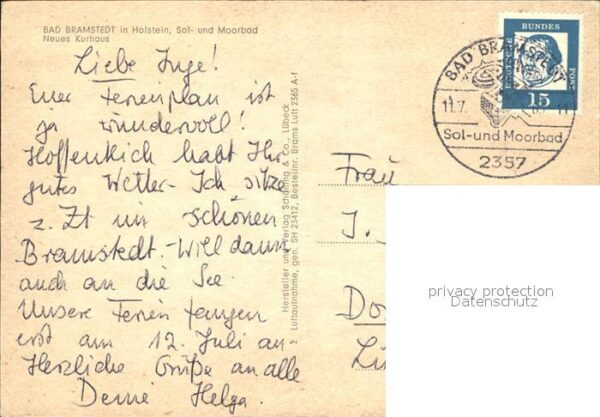 BAD BRAMSTEDT in Holstein, Sol- und Moorbad
Neues Kurhaus
Liebe Inge!
Euer Ferienplan ist
ja wundervoll!
Hoffentlich habt Ihr
gutes Wetter - Ich sitze
z. Zt im schönen
Bramstedt. - Will dann
auch an die See.
Unsere Ferien fangen
erst am 12. Juli an -
Herzliche Grüße an alle
Deine Helga.
Hersteller und Verlag Schöning & Co., Lübeck
Luftaufnahme, gen. SH 23412, Bestellnr. Brams Luft 2365 A-f
BUNDES
POST
15
BAD BRAMSTEDT
11.7.
Sol-und Moorbad
2357
Frau
I.
Do
Lü
privacy protection
Datenschutz